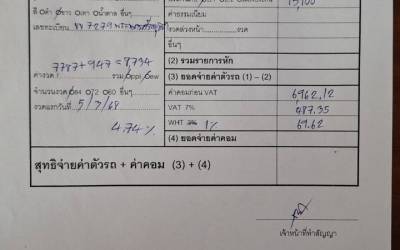 สี Oดำ Oขาว Oเทา Oน้ำตาล อื่นๆ
ค่าธรรมเนียม 
เลขทะเบียน 7279
งวดล่วงหน้า งวด
อื่นๆ
7787+947 = 8,734
(2) รวมรายการหัก
ค่างวด รวม Oppi Oew
(3) ยอดจ่ายค่าตัวรถ (1) – (2)
จำนวนงวด O84 O72 O60 อื่นๆ
ค่าคอมก่อน VAT 6962.12
งวดแรกวันที่ 5/7/68
VAT 7% 487.35
4.74%
WHT 3% 1% 69.62
(4) ยอดจ่ายค่าคอม
สุทธิจ่ายค่าตัวรถ + ค่าคอม (3) + (4)
เจ้าหน้าที่ทำสัญญา